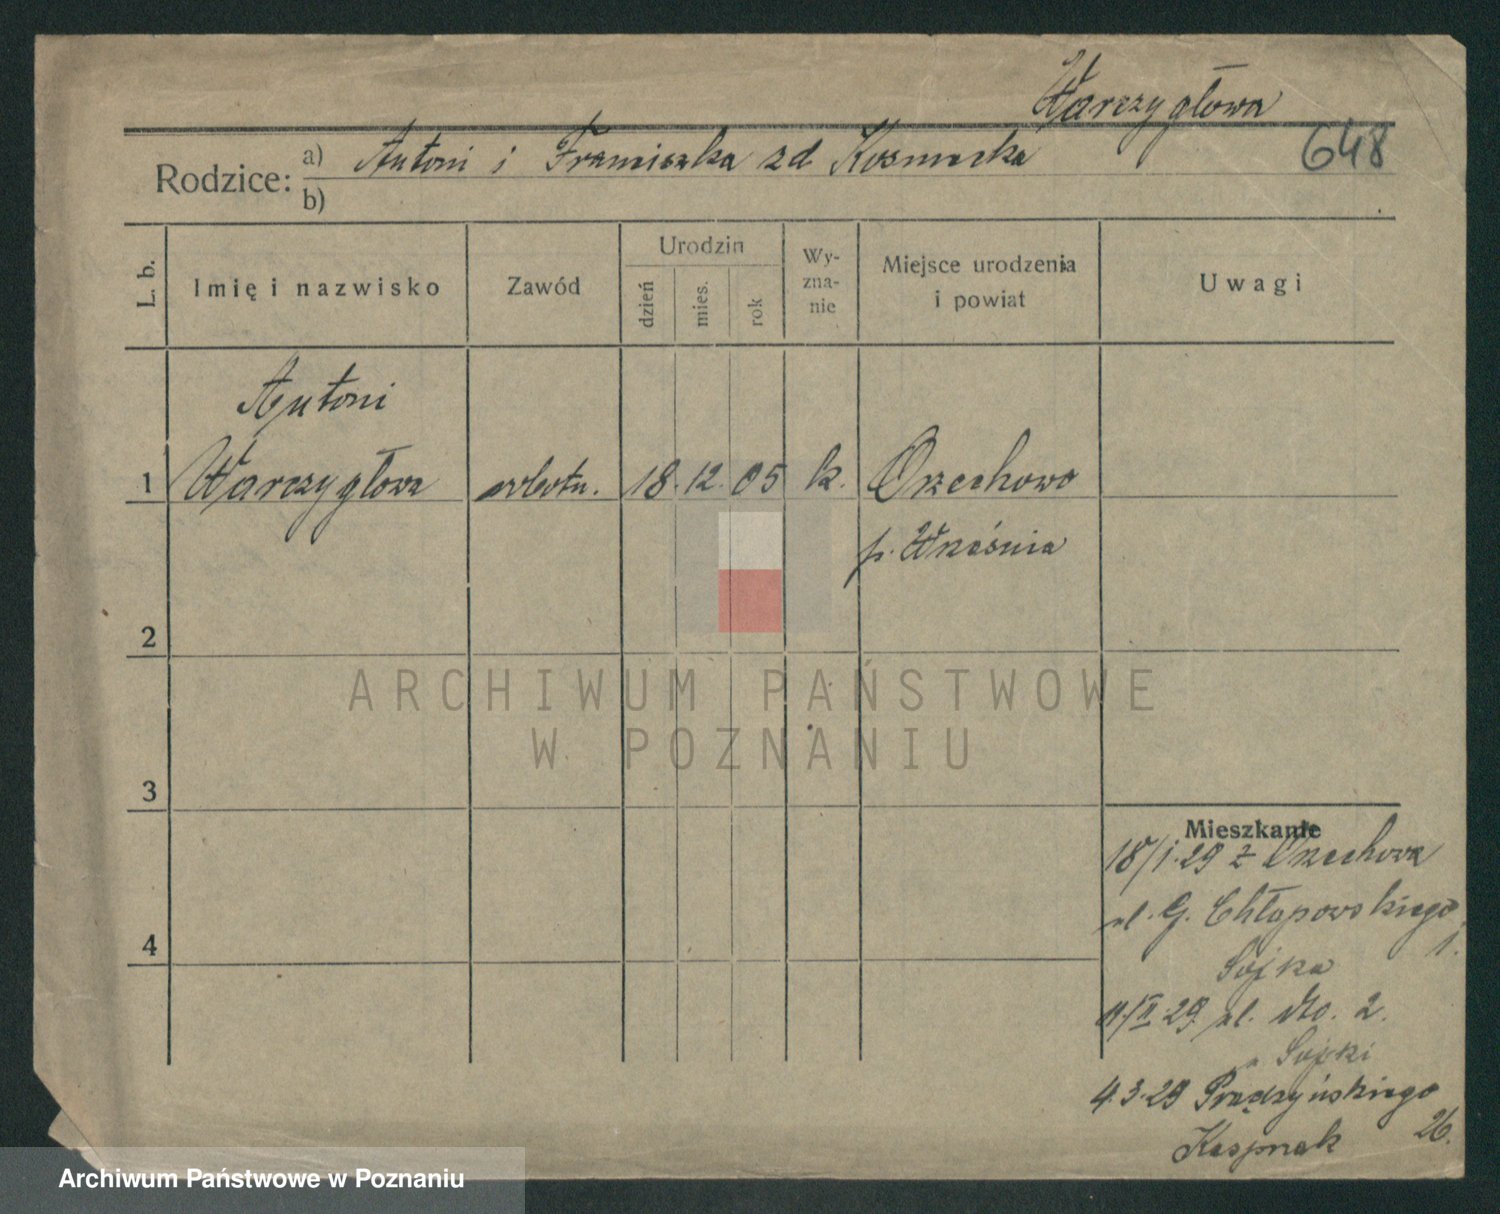 Warczygłowa
648
Rodzice:
a) Antoni i Franciszka zd Kosmecka
b)
L. b.
Imię i nazwisko
Zawód
Urodzin
dzień
mies.
rok
Wy-
zna-
nie
Miejsce urodzenia
i powiat
Uwagi
Antoni
1 Warczygłowa robotn. 18. 12. 05 k. Orzechowo
p. Września
2
3
4
ARCHIWUM PAŃSTWOWE
W POZNANIU
Mieszkanie
18/1.29 z Orzechowa
ul. G. Chłapowskiego 1.
Sojka
11/II.29 ul. dto. 2.
" Sojki
4.3.29 Prądzyńskiego 26.
Kaspnak
Archiwum Państwowe w Poznaniu